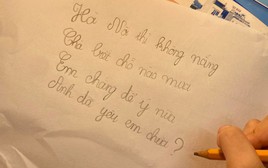 Hà Nội thì không nắng
Chả biết chỗ nào mưa
Em chẳng để ý nữa
Anh đã yêu em chưa?